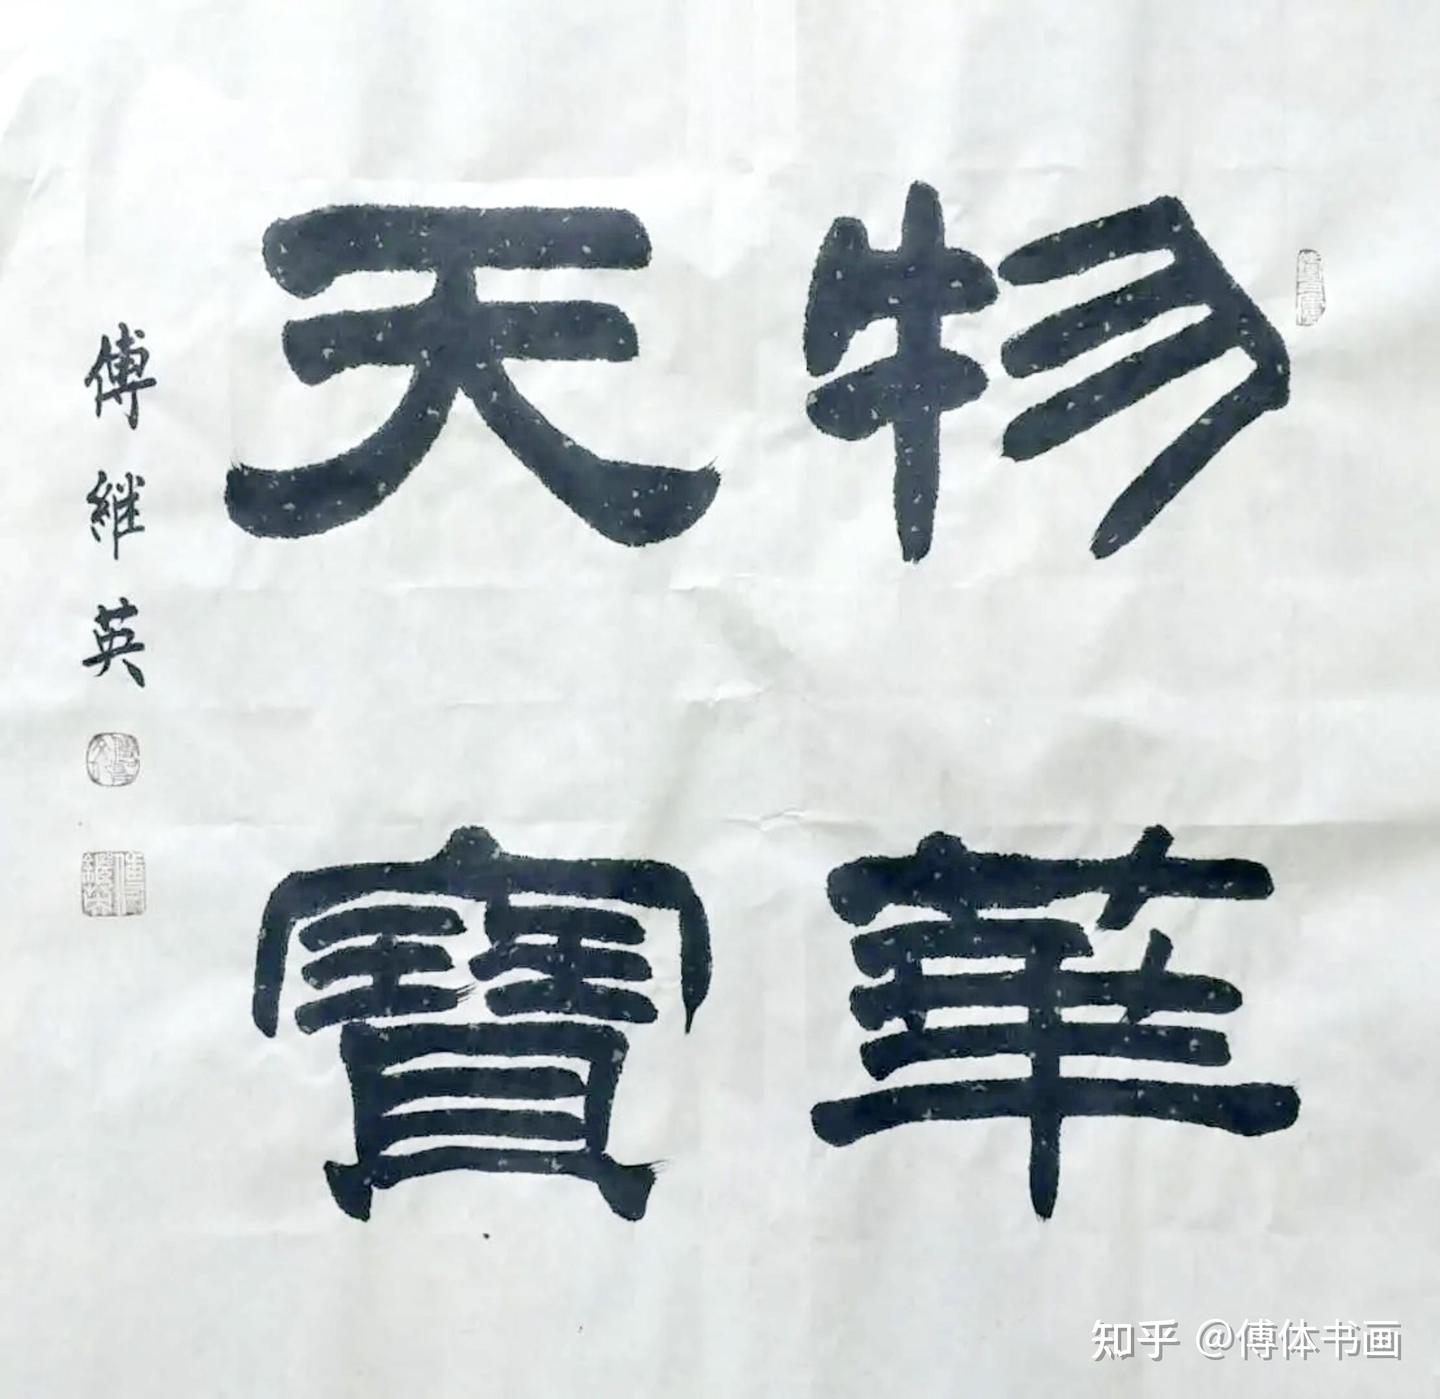 物華
天寶
傅継英
知乎 @傅体书画